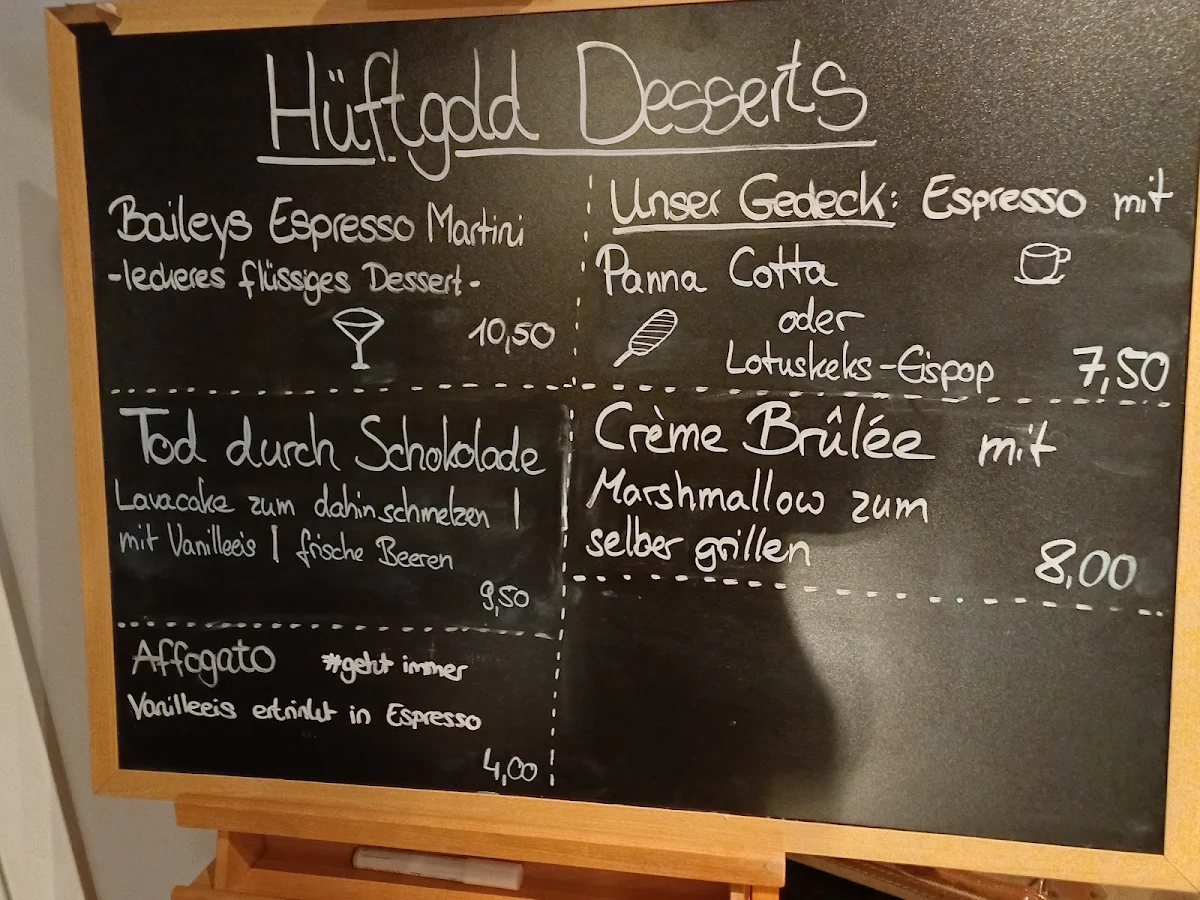 Hüftgold Desserts
Baileys Espresso Martini
-leckeres flüssiges Dessert-
10,50
Unser Gedeck: Espresso mit
Panna Cotta
oder
Lotuskeks-Eispop
7,50
Tod durch Schokolade
Lavacake zum dahinschmelzen |
mit Vanilleeis | frische Beeren
9,50
Crème Brûlée mit
Marshmallow zum
selber grillen
8,00
Affogato #geht immer
Vanilleeis ertrinkt in Espresso
4,00